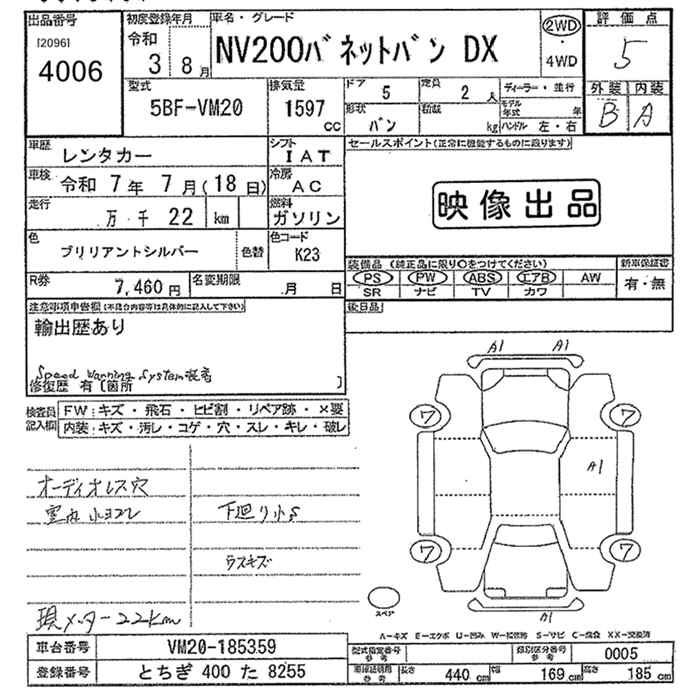 出品番号 初度登録年月 車名・グレード 2WD・4WD 評価点
[2096] 4006 令和 3 8月 NV200バネットバン DX 5
型式 5BF-VM20 排気量 1597 cc ドア 5 定員 2 人 ディーラー・並行 外装 内装
形状 バン 積載 kg モデル年式 年 ハンドル 左・右 B A
車歴 レンタカー シフト IAT セールスポイント(正常に機能するものに限ります)
車検 令和 7年 7月(18日) 冷房 AC
走行 万 千 22 km 燃料 ガソリン 映像出品
色 ブリリアントシルバー 色替 色コード K23
装備品(純正品に限り〇をつけてください) 新車保証書
R券 7,460円 名変期限 月 日 PS PW ABS エアB AW 有・無
SR ナビ TV カワ
注意事項申告欄(不具合内容等は具体的に記入して下さい) 後日品
輸出歴あり
Speed Warning System装着
修復歴 有〔箇所 〕
A1 A1
検査員記入欄 FW:キズ・飛石・ヒビ割・リペア跡・×要
内装:キズ・汚レ・コゲ・穴・スレ・キレ・破レ
ワ ワ
A1
オーディオレス穴
室内小ヨゴレ 下廻り小S
ワ ワ
ウスキズ
スペア
現メーター22km A1
A-キズ E-エクボ U-凹み W-補修跡 S-サビ C-腐食 XX-交換済
車台番号 VM20-185359 型式指定番号 参考 類別区分番号 参考 0005
登録番号 とちぎ 400 た 8255 車検証明細 参考 長さ 440 cm 幅 169 cm 高さ 185 cm